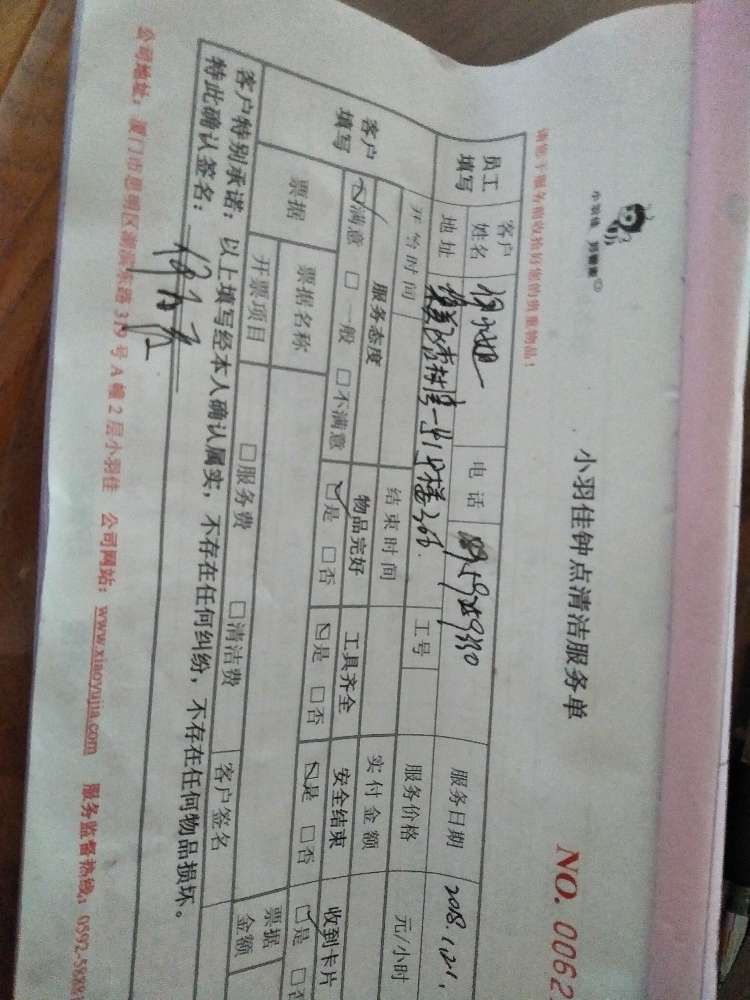 小羽佳 好管家
小羽佳钟点清洁服务单
NO. 0062
请您于服务前收拾好您的贵重物品!
员工填写 客户姓名 电话 服务日期 2018.1.21.
地址 工号 服务价格 元/小时
开始时间 结束时间 实付金额
客户填写 服务态度 物品完好 工具齐全 安全结束 收到卡片
☑满意 □一般 □不满意 ☑是 □否 ☑是 □否 ☑是 □否 ☑是 □否
票据 票据名称 票据金额
开票项目 □服务费 □清洁费 客户签名
客户特别承诺：以上填写经本人确认属实，不存在任何纠纷，不存在任何物品损坏。
特此确认签名：
公司地址：厦门市思明区湖滨东路 319 号 A 幢 2 层小羽佳 公司网站：www.xiaoyujia.com 服务监督热线：0592-5889